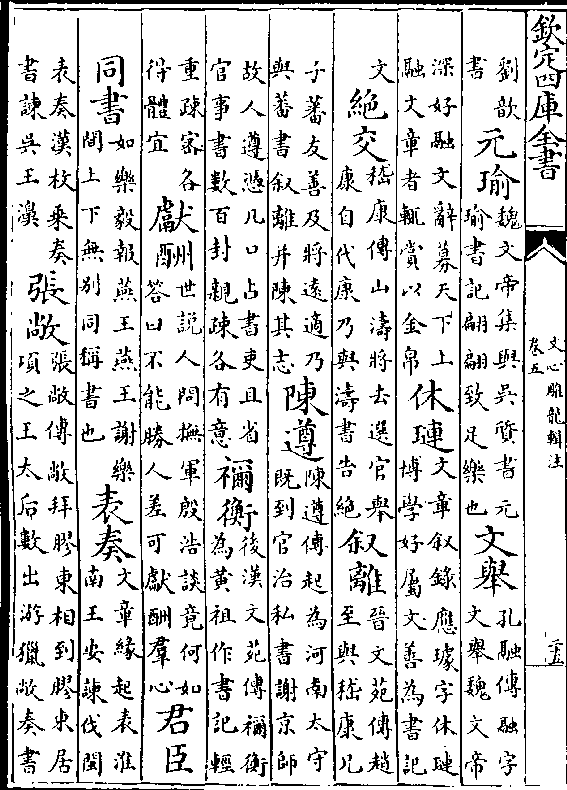 欽定四庫全書
文心雕龍輯注
卷五
二十五
劉歆
書
元瑜
魏文帝集與吳質書元
瑜書記翩翩致足樂也
文舉
孔融傳融字
文舉魏文帝
深好融文辭募天下上
融文章者輒賞以金帛
休璉
文章叙錄應璩字休璉
博學好屬文善為書記
文
絶交
嵇康傳山濤將去選官舉
康自代康乃與濤書告絶
叙離
晉文苑傳趙
至與嵇康兄
子蕃友善及將遠適乃
與蕃書叙離并陳其志
陳遵
陳遵傳起為河南太守
既到官治私書謝京師
故人遵憑几口占書吏且省
官事書數百封親疎各有意
禰衡
後漢文苑傳禰衡
為黃祖作書記輕
重疎密各
得體宜
獻酬
世說人問撫軍殷浩談竟何如
答曰不能勝人差可獻酬羣心
君臣
同書
如樂毅報燕王燕王謝樂
間上下無別同稱書也
表奏
文章緣起表淮
南王安諫伐閩
表奏漢枚乘奏
書諫吳王濞
張敞
張敞傳敞拜膠東相到膠東居
項之王太后數出游獵敞奏書